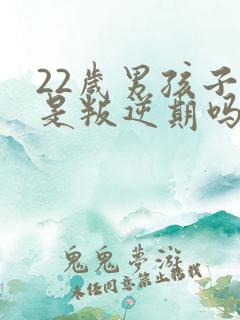 22歲男孩子
是叛逆期吗
鬼鬼夢游
未经同意禁止转载